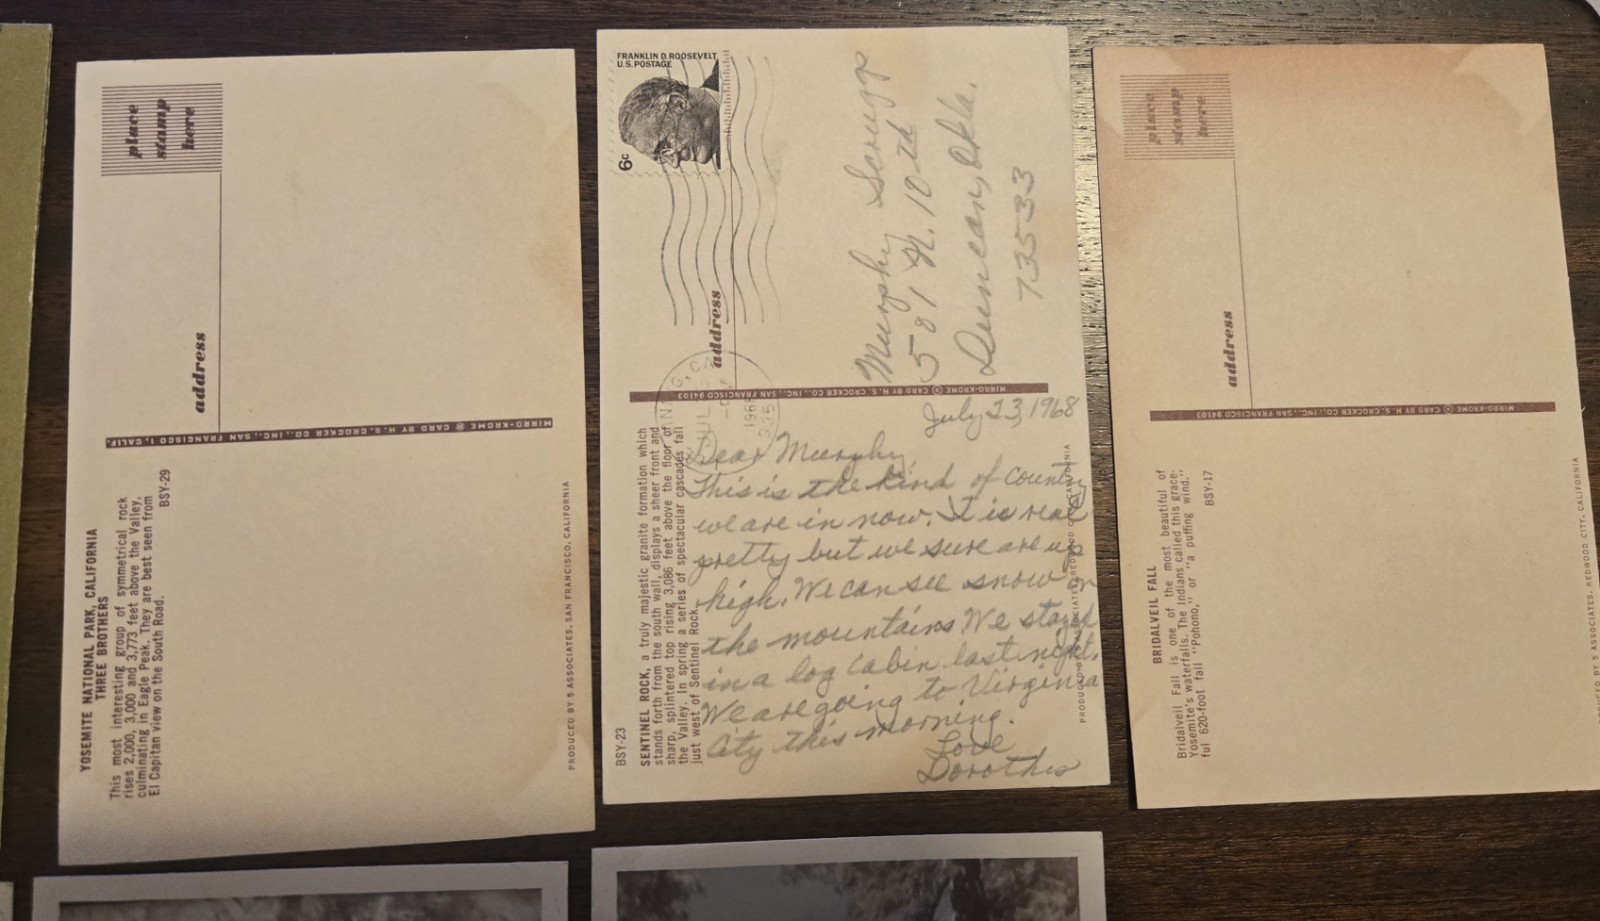 place
stamp
here
address
MIRRO-KROME ® CARD BY H. S. CROCKER CO., INC., SAN FRANCISCO 1, CALIF.
YOSEMITE NATIONAL PARK, CALIFORNIA
THREE BROTHERS
This most interesting group of symmetrical rock
rises 2,000, 3,000 and 3,773 feet above the Valley,
culminating in Eagle Peak. They are best seen from
El Capitan view on the South Road.
BSY-29
PRODUCED BY 5 ASSOCIATES, SAN FRANCISCO, CALIFORNIA
FRANKLIN D. ROOSEVELT
U.S. POSTAGE
6c
address
Murphy Scruggs
501 N. 10th
Duncan, Okla.
73533
MIRRO-KROME ® CARD BY H. S. CROCKER CO., INC., SAN FRANCISCO 94103
JUL
1968
July 23, 1968
Dear Murphy,
This is the kind of country
we are in now. It is real
pretty but we sure are up
high. We can see snow on
the mountains We stayed
in a log cabin last night.
We are going to Virginia
City this morning.
Love
BSY-23
SENTINEL ROCK, a truly majestic granite formation which
stands forth from the south wall, displays a sheer front and
sharp, splintered top rising 3,086 feet above the floor of
the Valley. In spring a series of spectacular cascades fall
just west of Sentinel Rock.
PRODUCED BY 5 ASSOCIATES, REDWOOD CITY, CALIFORNIA
place
stamp
here
address
MIRRO-KROME ® CARD BY H. S. CROCKER CO., INC., SAN FRANCISCO 94103
BRIDALVEIL FALL
Bridalveil Fall is one of the most beautiful of
Yosemite's waterfalls. The Indians called this grace-
ful 620-foot fall "Pohono," or "a puffing wind."
BSY-17
PRODUCED BY 5 ASSOCIATES, REDWOOD CITY, CALIFORNIA